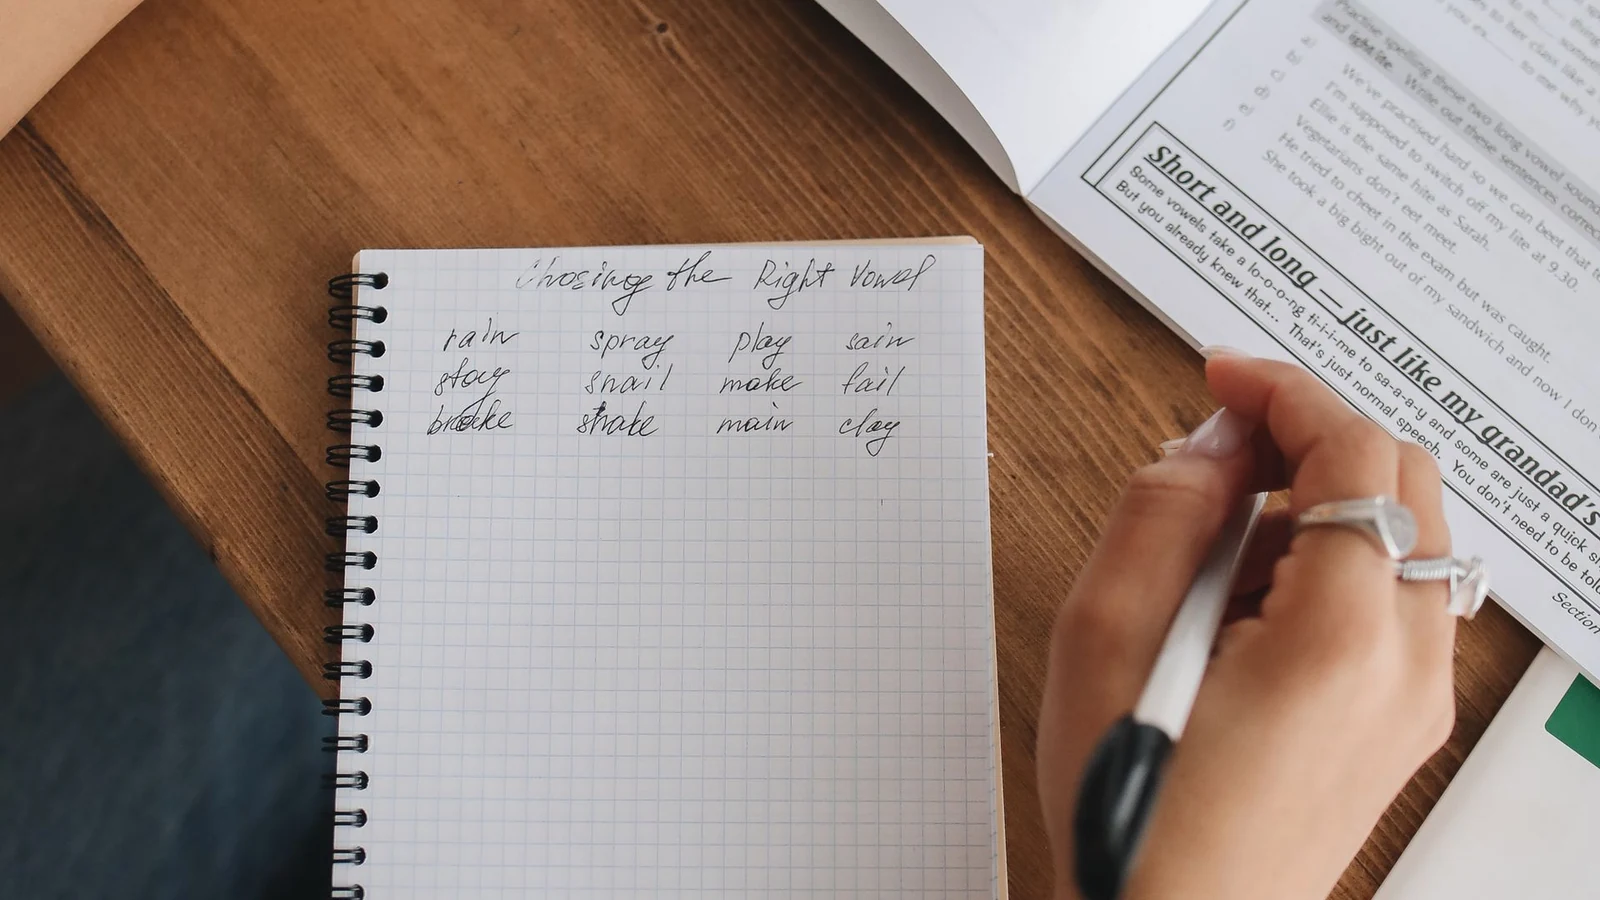 Chosing the Right Vowel
rain spray play sain
stay snail make fail
brake shake main clay
Practise spelling these two long vowel sounds
and ight/ite. Write out these sentences correc
a) We've practised hard so we can beet that t
b) I'm supposed to switch off my lite at 9.30.
c) Ellie is the same hite as Sarah.
d) Vegetarians don't eet meet.
e) He tried to cheet in the exam but was caught.
f) She took a big bight out of my sandwich and now I don
Short and long — just like my grandad's
Some vowels take a lo-o-o-ng ti-i-i-me to sa-a-a-y and some are just a quick s
But you already knew that... That's just normal speech. You don't need to be tol
Section